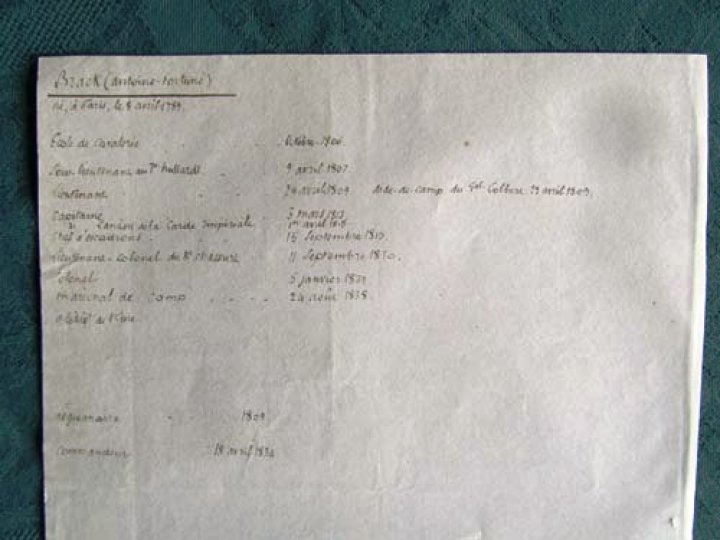 Brack (Antoine-Fortuné)
né, à Paris, le 8 avril 1789.
École de Cavalerie . . octobre 1806
Sous-lieutenant au 7e hussards . 9 avril 1807.
Lieutenant . . 29 avril 1809 aide-de-camp du Gal Colbert 29 avril 1809.
Capitaine . . 3 mars 1813
Lanciers de la Garde Impériale 1er avril 1813
Chef d'escadrons . . . 15 Septembre 1813.
Lieutenant-Colonel du 8e chasseurs 11 Septembre 1830.
Colonel 5 janvier
maréchal de Camp . . . . 24 août 1838.
légionnaire . . 1809
Commandeur 18 avril 1834